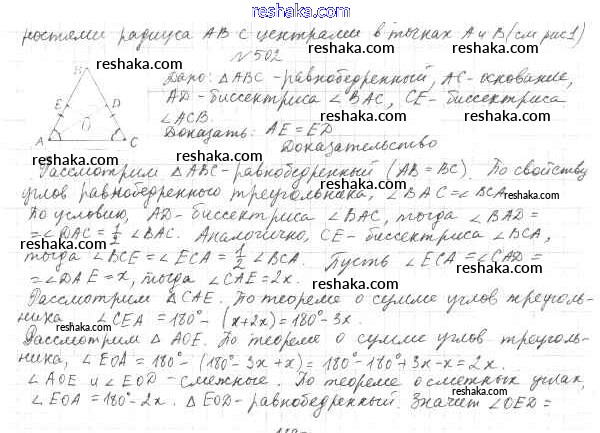 reshaka.com
ностями радиуса AB с центрами в точках A и B (см рис 1)
№ 502
Дано: △ABC - равнобедренный, AC - основание,
AD - биссектриса ∠BAC, CE - биссектриса
∠ACB.
Доказать: AE = ED
Доказательство
B
E D
O
A C
Рассмотрим △ABC - равнобедренный (AB = BC). По свойству
углов равнобедренного треугольника, ∠BAC = ∠BCA.
По условию, AD - биссектриса ∠BAC, тогда ∠BAD =
= ∠DAC = 1/2 ∠BAC. Аналогично, CE - биссектриса ∠BCA,
тогда ∠BCE = ∠ECA = 1/2 ∠BCA. Пусть ∠ECA = ∠CAD =
= ∠DAE = x, тогда ∠CAE = 2x.
Рассмотрим △CAE. По теореме о сумме углов треуголь-
ника ∠CEA = 180° - (x + 2x) = 180° - 3x.
Рассмотрим △AOE. По теореме о сумме углов треуголь-
ника, ∠EOA = 180° - (180° - 3x + x) = 180° - 180° + 3x - x = 2x.
∠AOE и ∠EOD - смежные. По теореме о смежных углах,
∠EOA = 180° - 2x. △EOD - равнобедренный. Значит ∠OED =